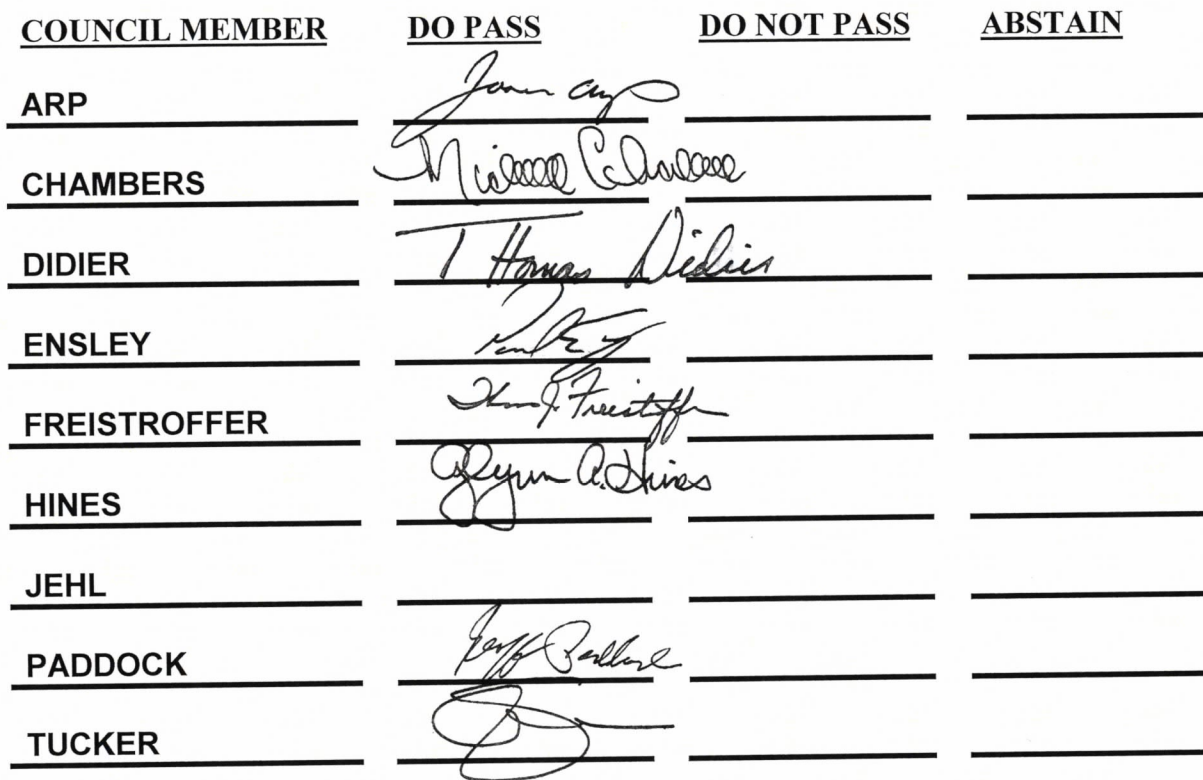 COUNCIL MEMBER DO PASS DO NOT PASS ABSTAIN
ARP
CHAMBERS Michelle Chambers
DIDIER Thomas Didier
ENSLEY
FREISTROFFER Freistroffer
HINES Glynn A. Hines
JEHL
PADDOCK Geoff Paddock
TUCKER